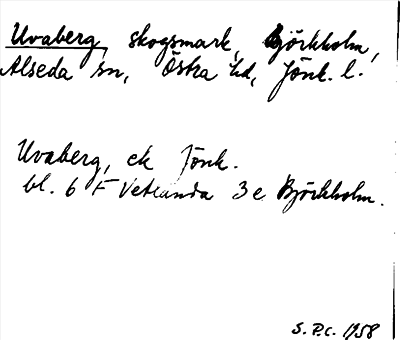 Uvaberg, skogsmark, Björkholm,
Alseda sn, Östra hd, Jönk. l.
Uvaberg, ek Jönk.
bl. 6 F Vetlanda 3 e Björkholm.
S. P.C. 1958